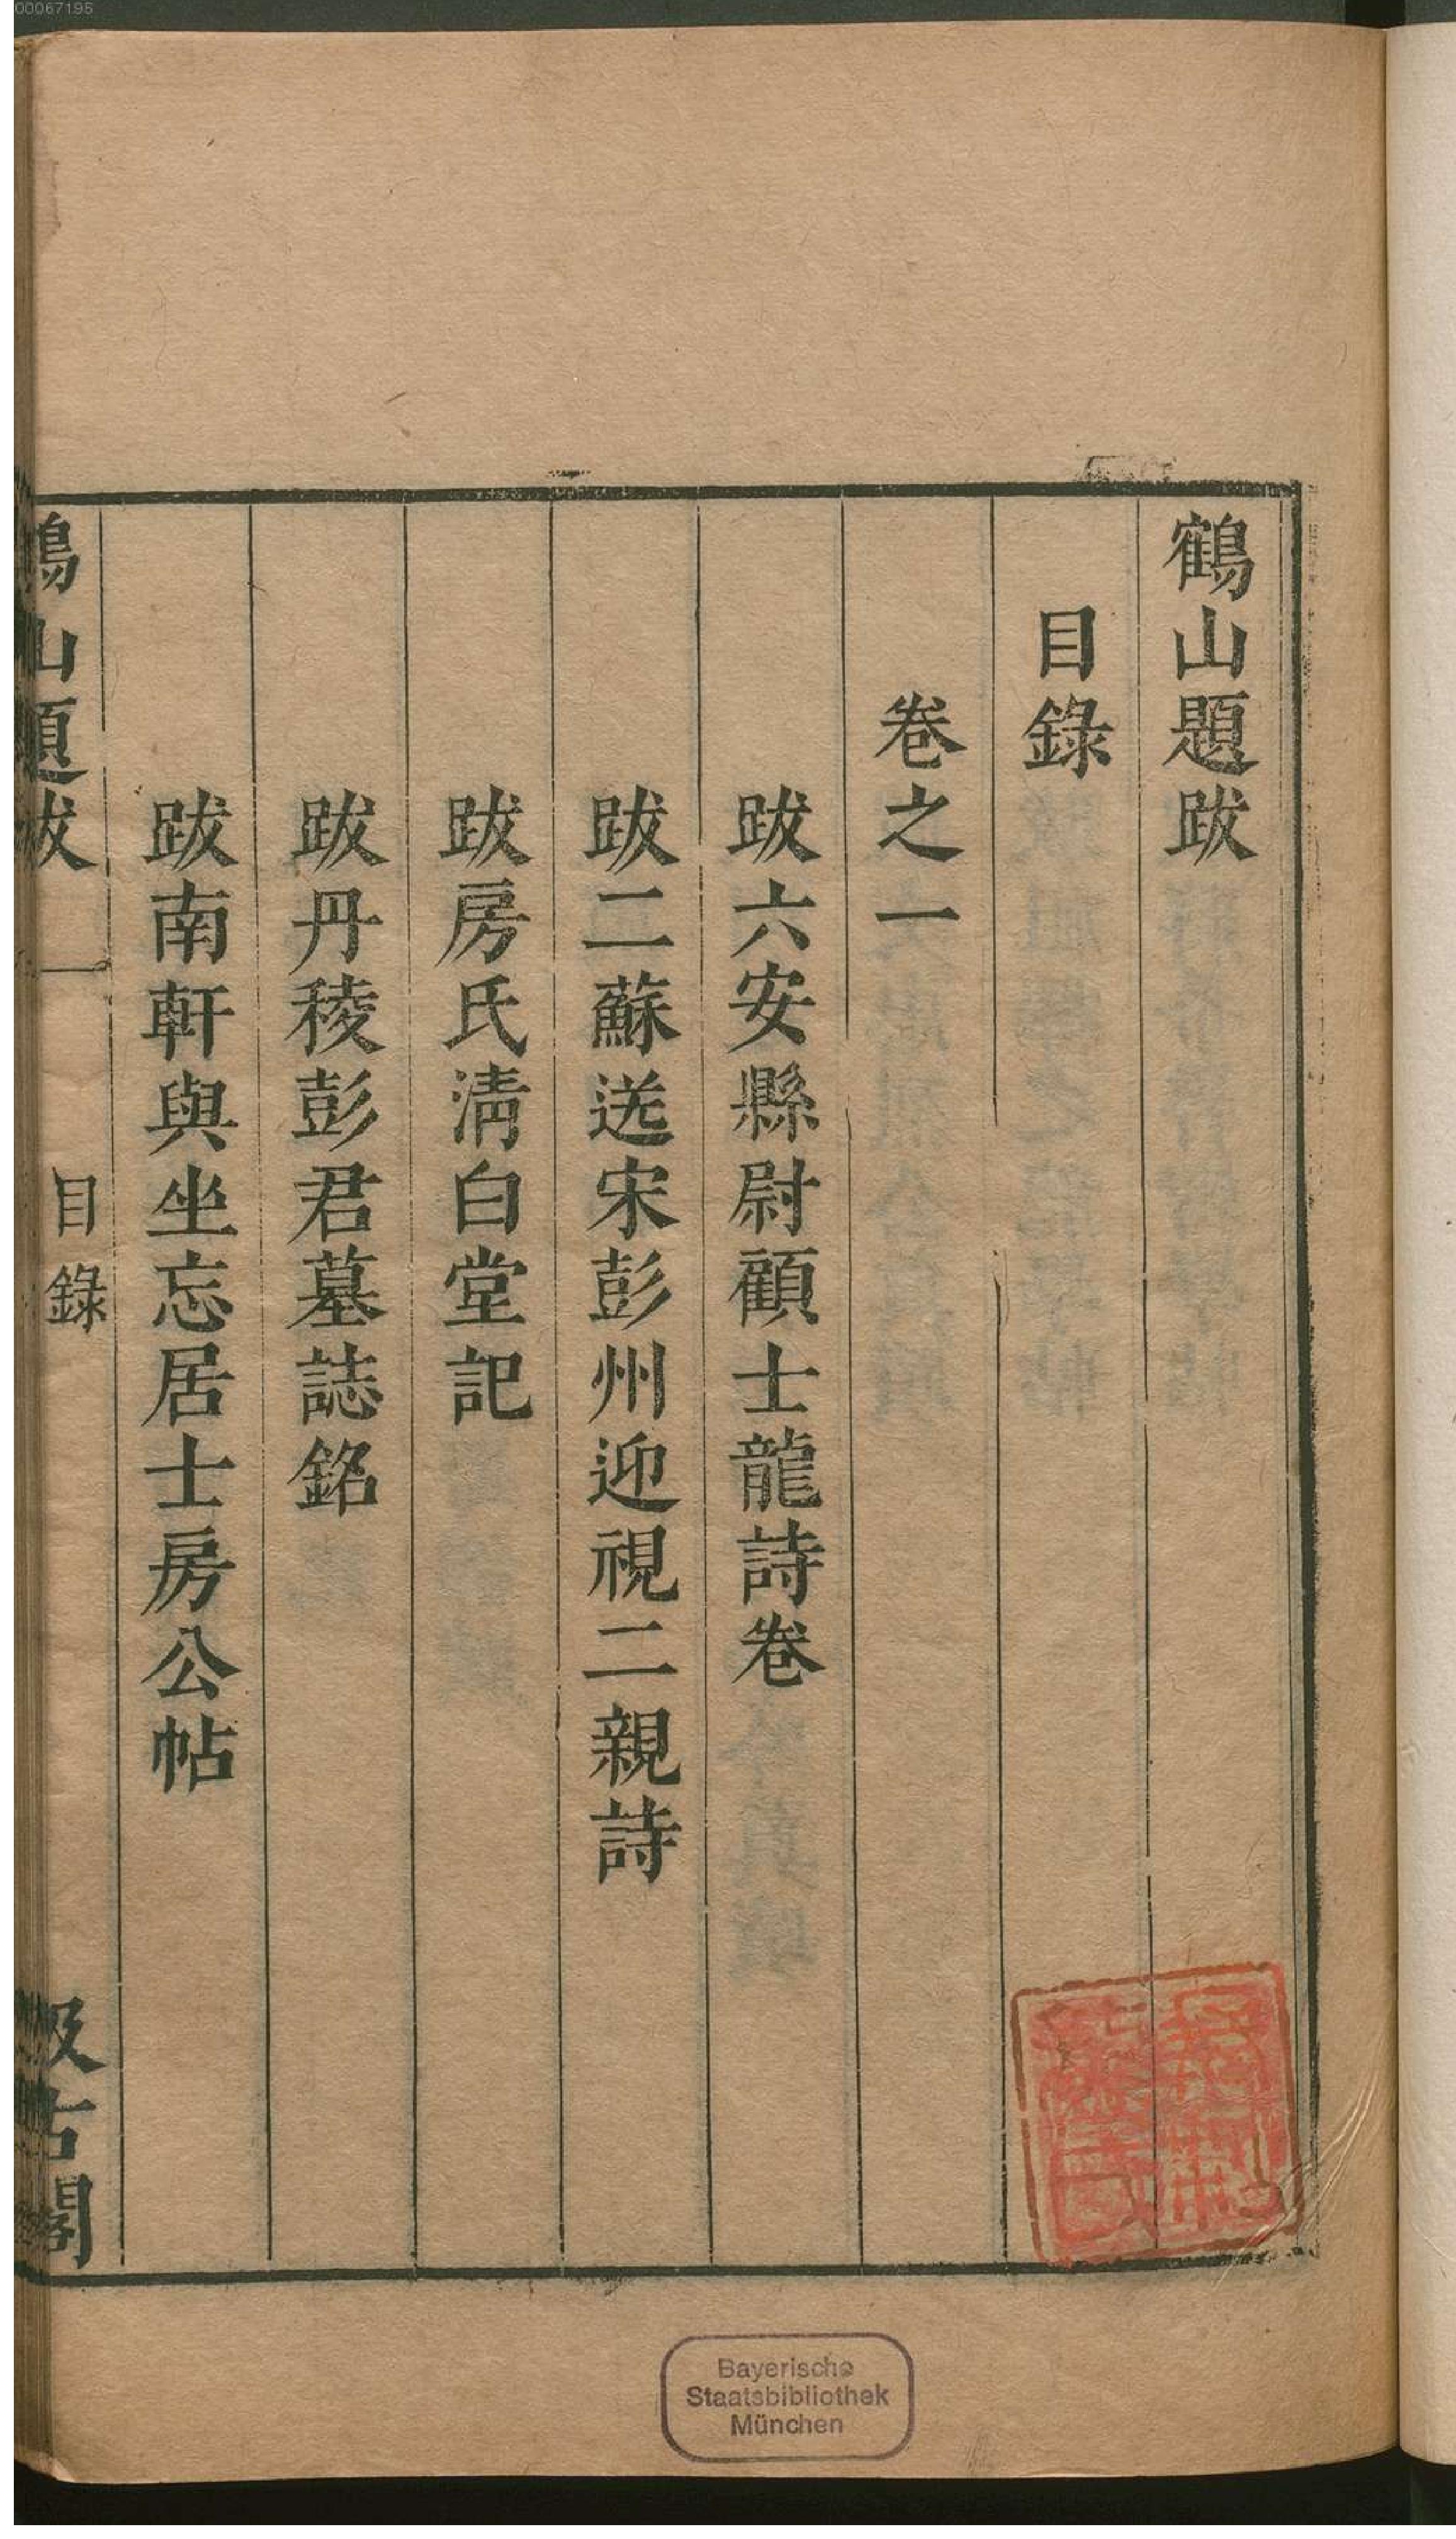 00067195
鶴山題跋
目錄
卷之一
跋六安縣尉顧士龍詩卷
跋二蘇送宋彭州迎視二親詩
跋房氏淸白堂記
跋丹稜彭君墓誌銘
跋南軒與坐忘居士房公帖
鶴山題跋 一 目錄 汲古閣
Bayerische
Staatsbibliothek
München